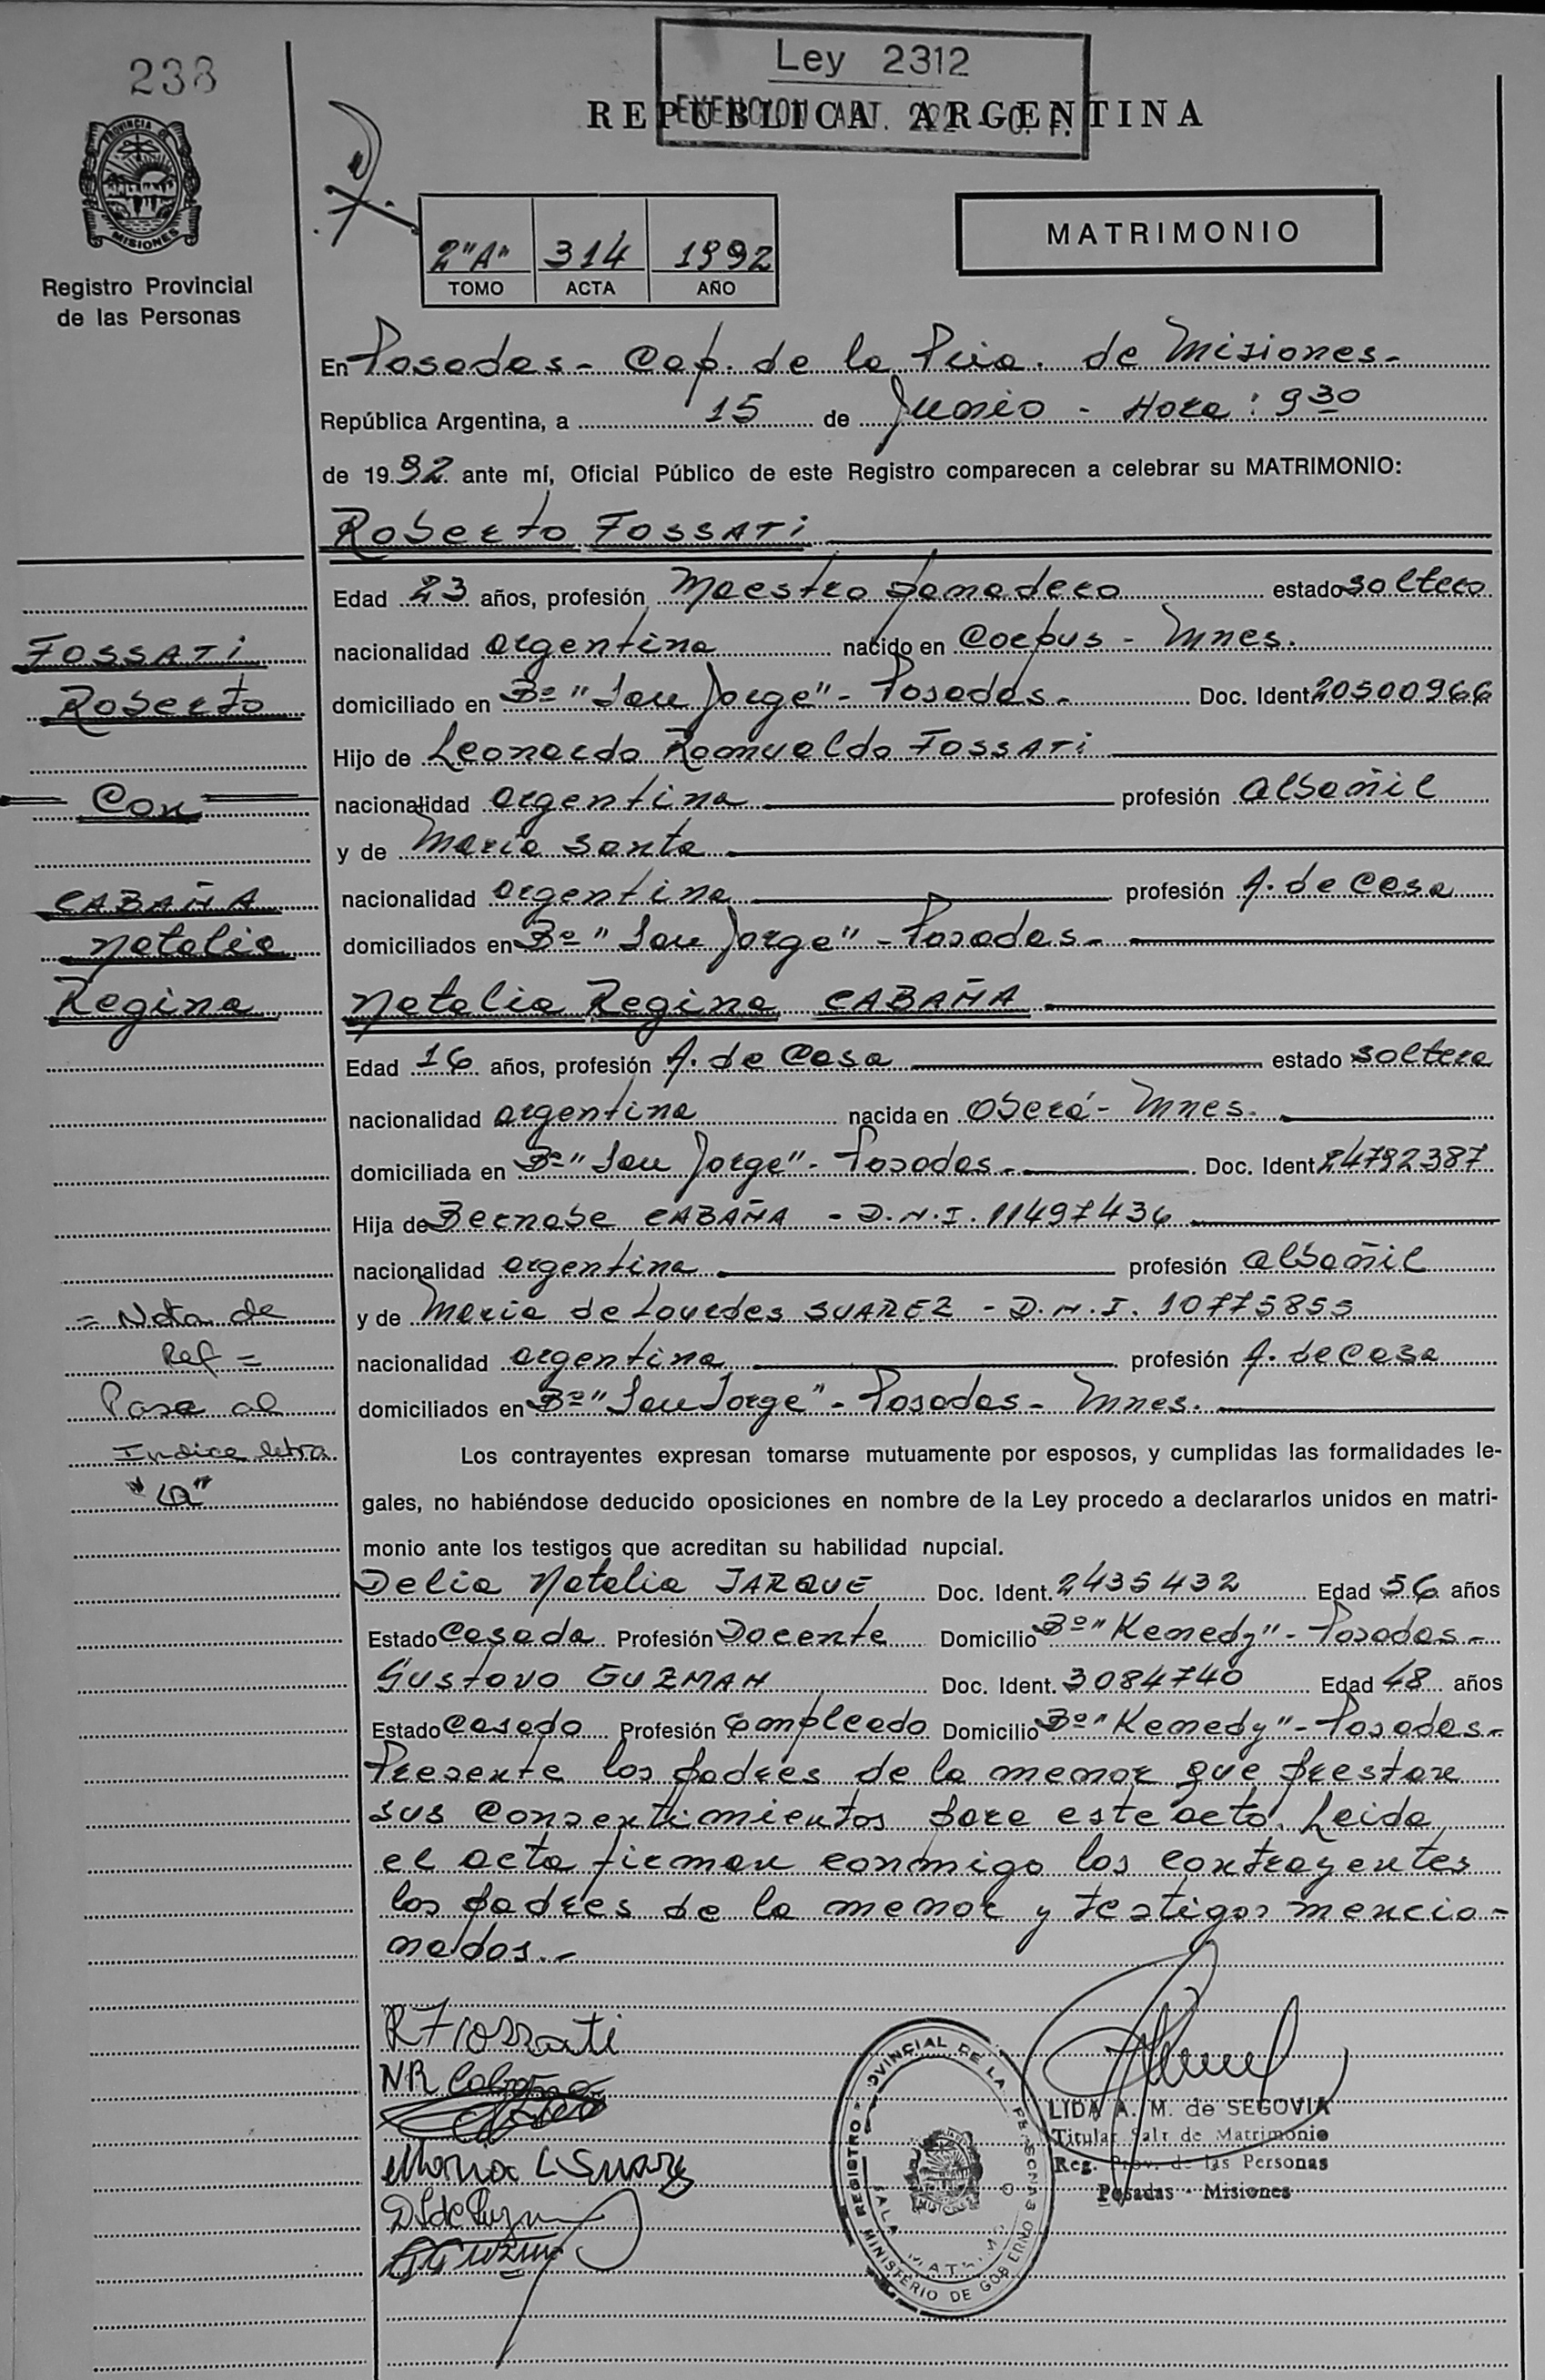 238
Ley 2312
EXENCION ART. 222
REPUBLICA ARGENTINA
PROVINCIA DE
MISIONES
Registro Provincial
de las Personas
MATRIMONIO
2"A" 314 1992
TOMO ACTA AÑO
En Posadas - Cap. de la Pcia. de Misiones -
República Argentina, a 15 de Junio - Hora: 9 30
de 1992 ante mí, Oficial Público de este Registro comparecen a celebrar su MATRIMONIO:
Roberto FOSSATi
Edad 23 años, profesión Maestro panadero estado soltero
FOSSATi
nacionalidad argentina nacido en Corpus - Mnes.
Roberto
domiciliado en Bº "San Jorge" - Posadas - Doc. Ident. 20500966
Hijo de Leonardo Romualdo FOSSATi
Con
nacionalidad argentina profesión albañil
y de Maria Santa
CABAÑA
nacionalidad argentina profesión A. de Casa
Natalia
domiciliados en Bº "San Jorge" - Posadas -
Regina
Natalia Regina CABAÑA
Edad 16 años, profesión A. de Casa estado soltera
nacionalidad argentina nacida en Oberá - Mnes.
domiciliada en Bº "San Jorge" - Posadas - Doc. Ident. 24792387
Hija de Bernabe CABAÑA - D.N.I. 11497436
nacionalidad argentina profesión albañil
= Nota de
y de Maria de Lourdes SUAREZ - D.N.I. 10775855
Ref =
nacionalidad argentina profesión A. de Casa
Pase al
domiciliados en Bº "San Jorge" - Posadas - Mnes.
Indice letra
Los contrayentes expresan tomarse mutuamente por esposos, y cumplidas las formalidades le-
gales, no habiéndose deducido oposiciones en nombre de la Ley procedo a declararlos unidos en matri-
monio ante los testigos que acreditan su habilidad nupcial.
Delia Natalia JARQUE Doc. Ident. 2435432 Edad 56 años
Estado Casada Profesión Docente Domicilio Bº "Kenedy" - Posadas -
Gustavo GUZMAN Doc. Ident. 3084740 Edad 48 años
Estado Casado Profesión Empleado Domicilio Bº "Kenedy" - Posadas -
Presente los padres de la menor que prestan
sus Consentimientos para este acto. Leida
el acta firman conmigo los contrayentes
los padres de la menor y testigos mencio-
nados. -
R Fossati
NR Cabaña
Maria L Suarez
D J de Guzman
G Guzman
REGISTRO PROVINCIAL DE LAS PERSONAS
MINISTERIO DE GOBIERNO
SALA
MISIONES
LIDA A. M. de SEGOVIA
Titular Salr de Matrimonio
Reg. Prov. de las Personas
Posadas - Misiones